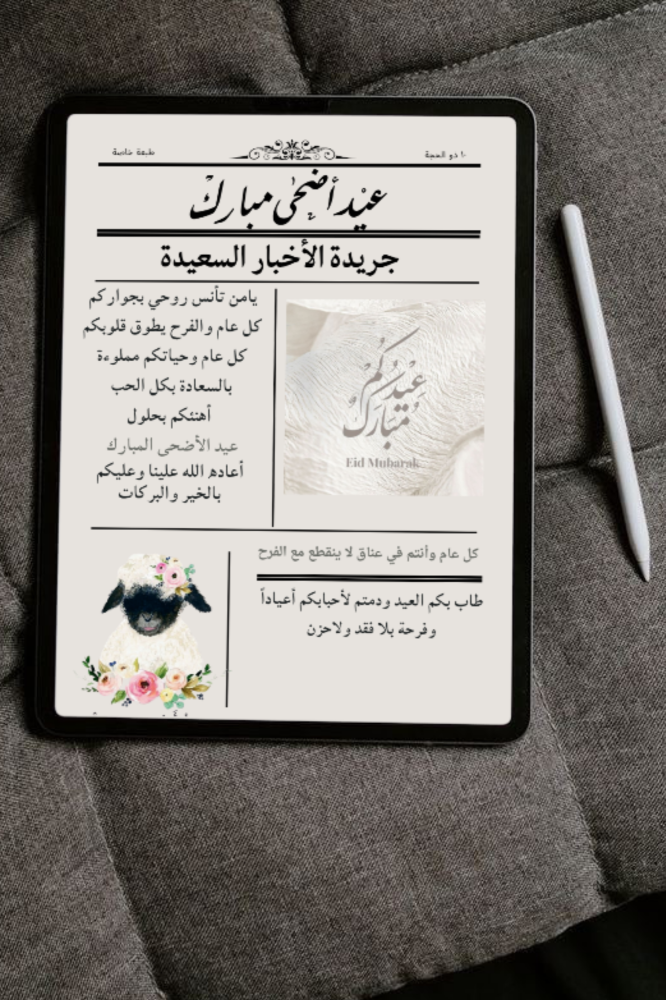 ١٠ ذو الحجة
طبعة خاصة
عيد أضحى مبارك
جريدة الأخبار السعيدة
يامن تأنس روحي بجواركم
كل عام والفرح يطوق قلوبكم
كل عام وحياتكم مملوءة
بالسعادة بكل الحب
أهنئكم بحلول
عيد الأضحى المبارك
أعاده الله علينا وعليكم
بالخير والبركات
عيدكم
مبارك
Eid Mubarak
كل عام وأنتم في عناق لا ينقطع مع الفرح
طاب بكم العيد ودمتم لأحبابكم أعياداً
وفرحة بلا فقد ولاحزن